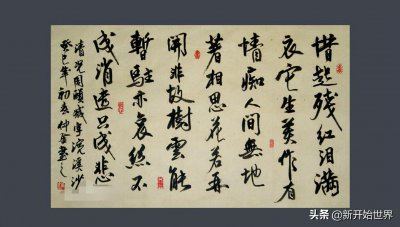 惜起残红泪满
衣它生莫作有
情痴人间無地
著相思花若再
開非故樹雲能
暫駐亦哀絲不
成消遣只成悲
清况周頤减字浣溪沙
癸巳年初春書之
头条 @新开始世界